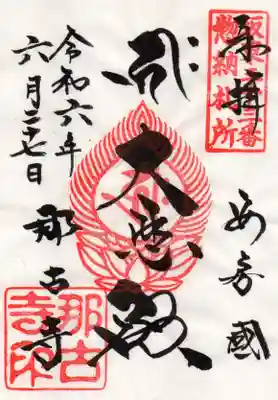 奉拝
坂東三十三番
惣納札所
安房國
大悲殿
令和六年
六月二十七日
那古寺
那古寺印